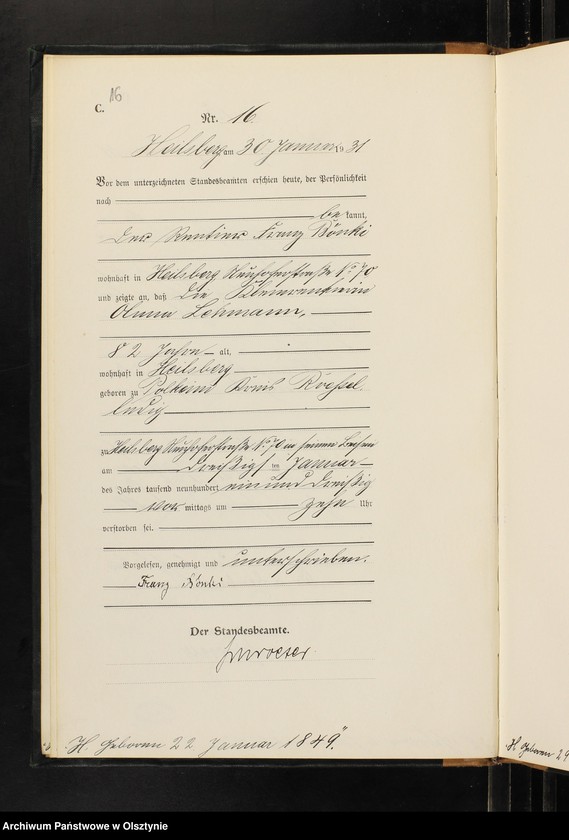 16
C.
Nr. 16
Heilsberg am 30 Januar 1931
Vor dem unterzeichneten Standesbeamten erschien heute, der Persönlichkeit
nach
be kannt,
der Rentier Franz
wohnhaft in Heilsberg Neuhoferstraße No 70
und zeigte an, daß die
Anna Lehmann,
82 Jahre alt,
wohnhaft in Heilsberg
geboren zu Polkeim Kreis Rössel
ledig
zu Heilsberg Neuhoferstraße No 70 in seinem Beisein
am dreißigsten Januar
des Jahres tausend neunhundert ein und dreißig
vor mittags um zehn Uhr
verstorben sei.
Vorgelesen, genehmigt und unterschrieben.
Franz
Der Standesbeamte.
H. Geboren 22 Januar 1849."
H. Geboren 29
Archiwum Państwowe w Olsztynie